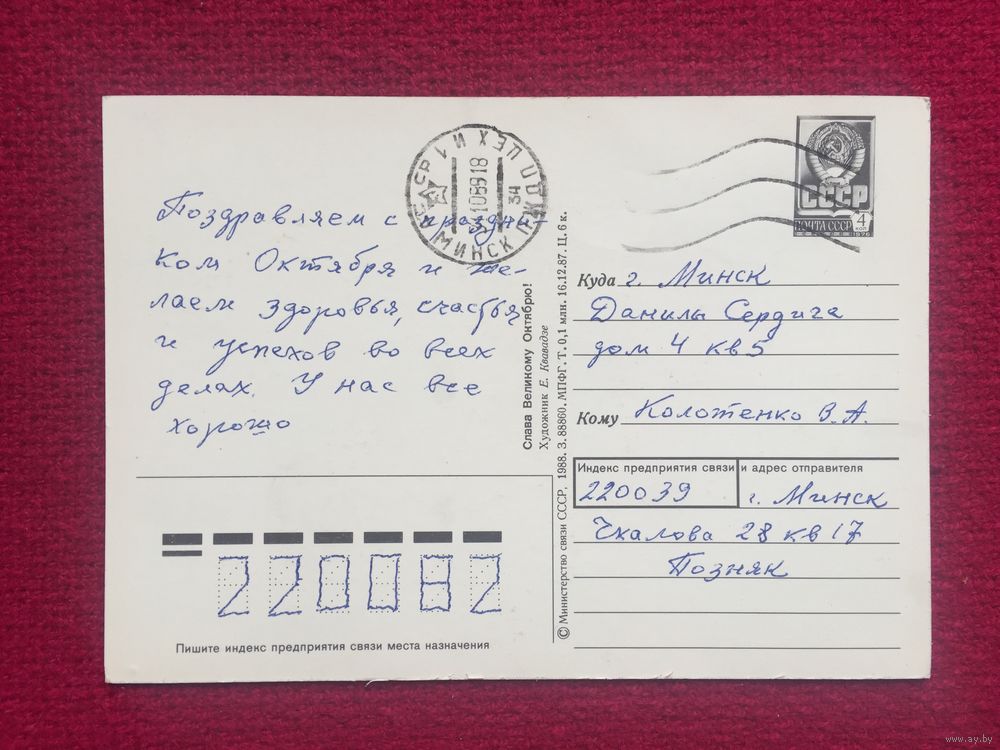 Поздравляем с праздни-
ком Октября и же-
лаем здоровья, счастья
и успехов во всех
делах. У нас все
хорошо
Пишите индекс предприятия связи места назначения
220082
Слава Великому Октябрю!
Художник Е. Квавадзе
© Министерство связи СССР, 1988. З. 88860. МПФГ. Т. 0,1 млн. 16.12.87. Ц. 6 к.
МИНСК
СССР
ПОЧТА СССР 4 коп
1976
Куда г. Минск
Данилы Сердича
дом 4 кв 5
Кому Колотенко В. А.
Индекс предприятия связи и адрес отправителя
220039 г. Минск
Чкалова 28 кв 17
Позняк
www.ay.by